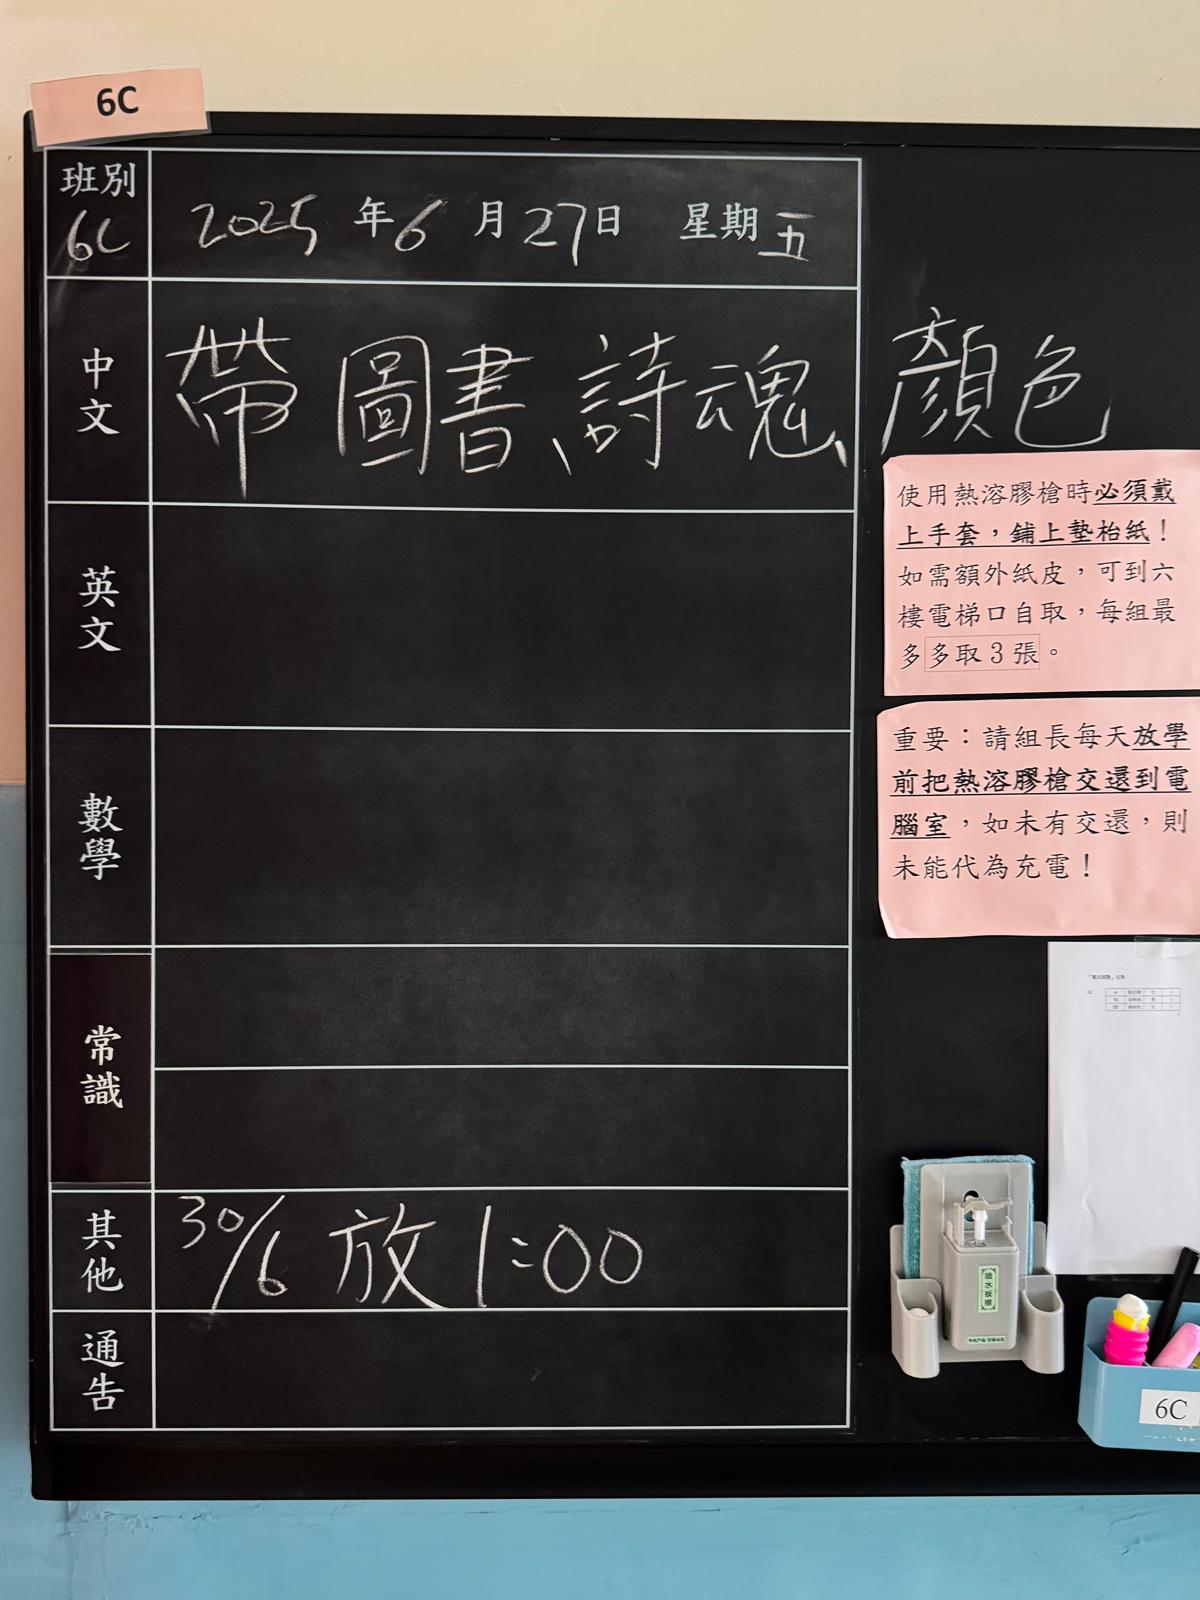 6C
班別
6C
2025 年 6 月 27 日 星期五
中文
帶圖書、詩魂、顏色
英文
數學
常識
其他
30/6 放 1:00
通告
使用熱溶膠槍時必須戴
上手套，鋪上墊枱紙！
如需額外紙皮，可到六
樓電梯口自取，每組最
多多取3張。
重要：請組長每天放學
前把熱溶膠槍交還到電
腦室，如未有交還，則
未能代為充電！
6C
6C